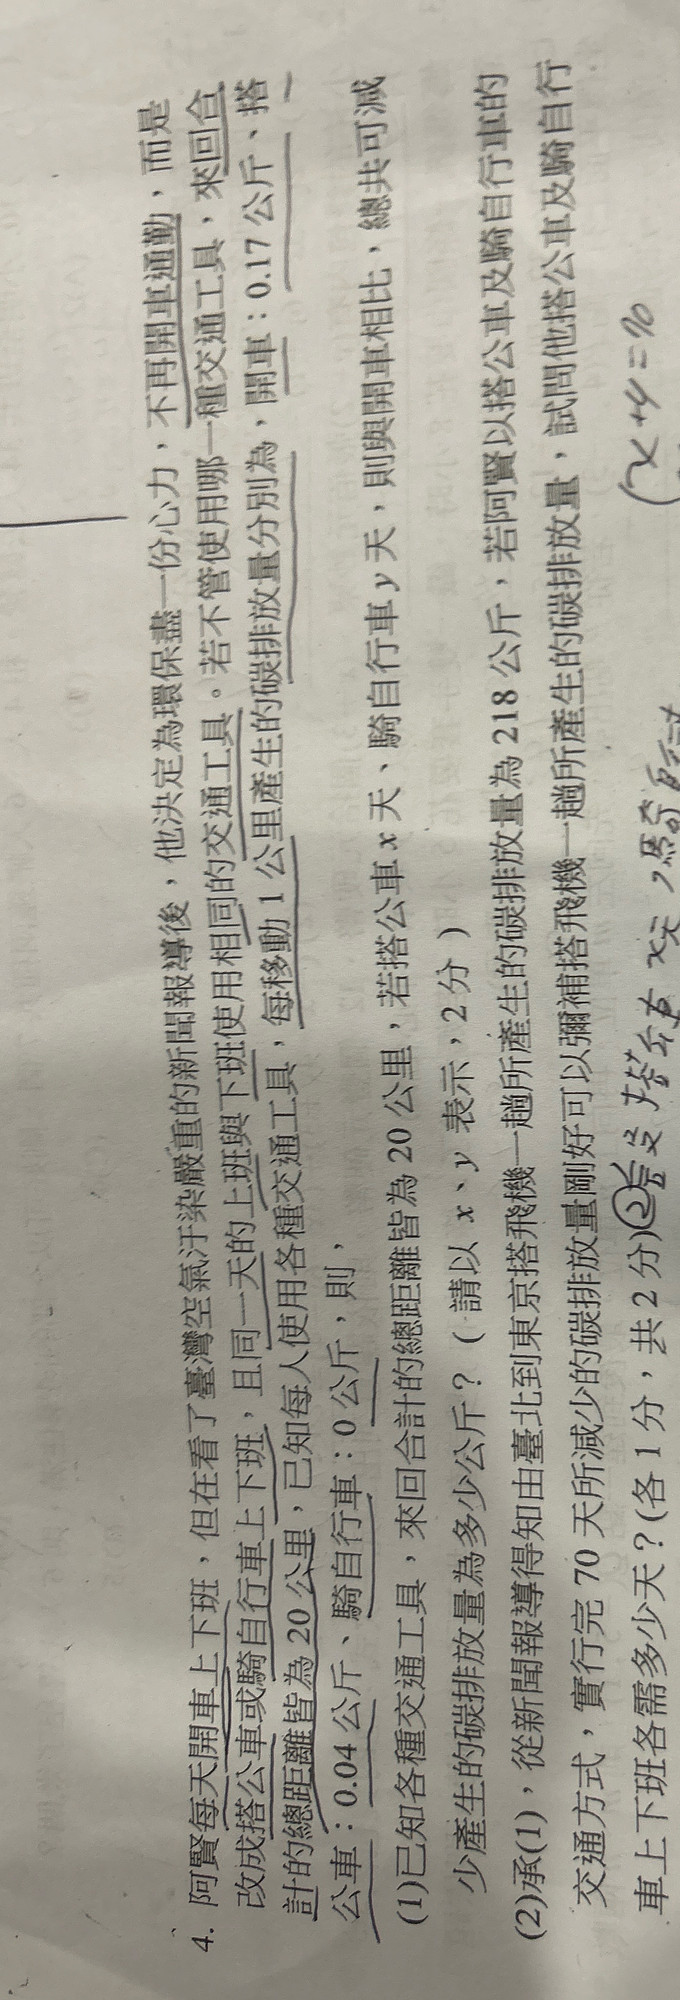 4. 阿賢每天開車上下班，但在看了臺灣空氣汙染嚴重的新聞報導後，他決定為環保盡一份心力，不再開車通勤，而是
改成搭公車或騎自行車上下班，且同一天的上班與下班使用相同的交通工具。若不管使用哪一種交通工具，來回合
計的總距離皆為 20 公里，已知每人使用各種交通工具，每移動 1 公里產生的碳排放量分別為，開車：0.17 公斤、搭
公車：0.04 公斤、騎自行車：0 公斤，則，
(1)已知各種交通工具，來回合計的總距離皆為 20 公里，若搭公車 x 天、騎自行車 y 天，則與開車相比，總共可減
少產生的碳排放量為多少公斤？（請以 x、y 表示，2 分）
(2)承(1)，從新聞報導得知由臺北到東京搭飛機一趟所產生的碳排放量為 218 公斤，若阿賢以搭公車及騎自行車的
交通方式，實行完 70 天所減少的碳排放量剛好可以彌補搭飛機一趟所產生的碳排放量，試問他搭公車及騎自行
車上下班各需多少天？(各 1 分，共 2 分)
②設搭公車 x天，騎
x+y=70